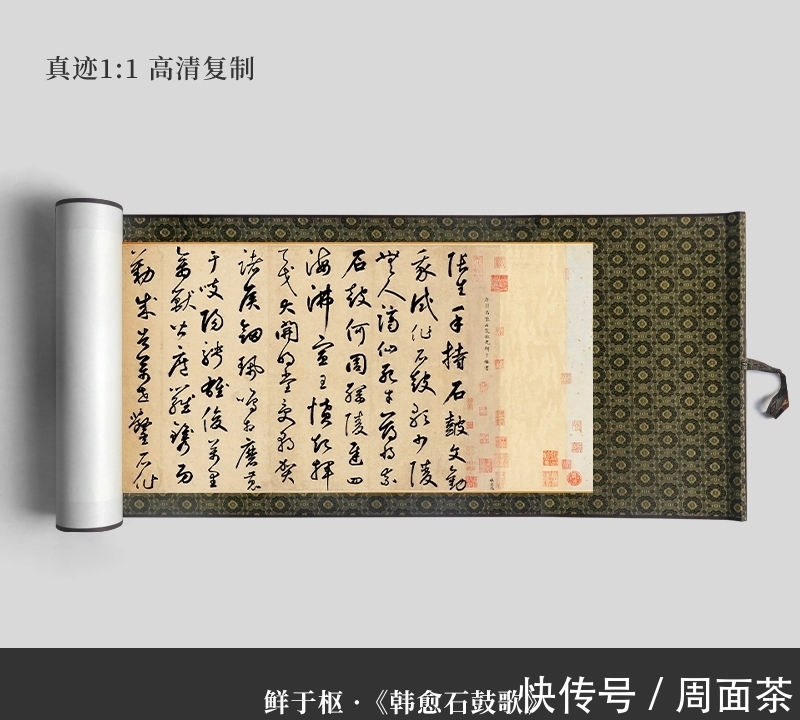 真迹1:1 高清复制
張生手持石鼓文勸
我試作石鼓歌少陵
無人謫仙死才薄将奈
石鼓何周綱陵遲四
海沸宣王憤起揮
天戈大開明堂受朝賀
諸侯劍珮鳴相磨蒐
于岐陽騁雄俊萬里
禽獸皆遮羅鐫功
勒成告萬世鑿石作
鲜于枢·《韩愈石鼓歌》
快传号 / 周面茶